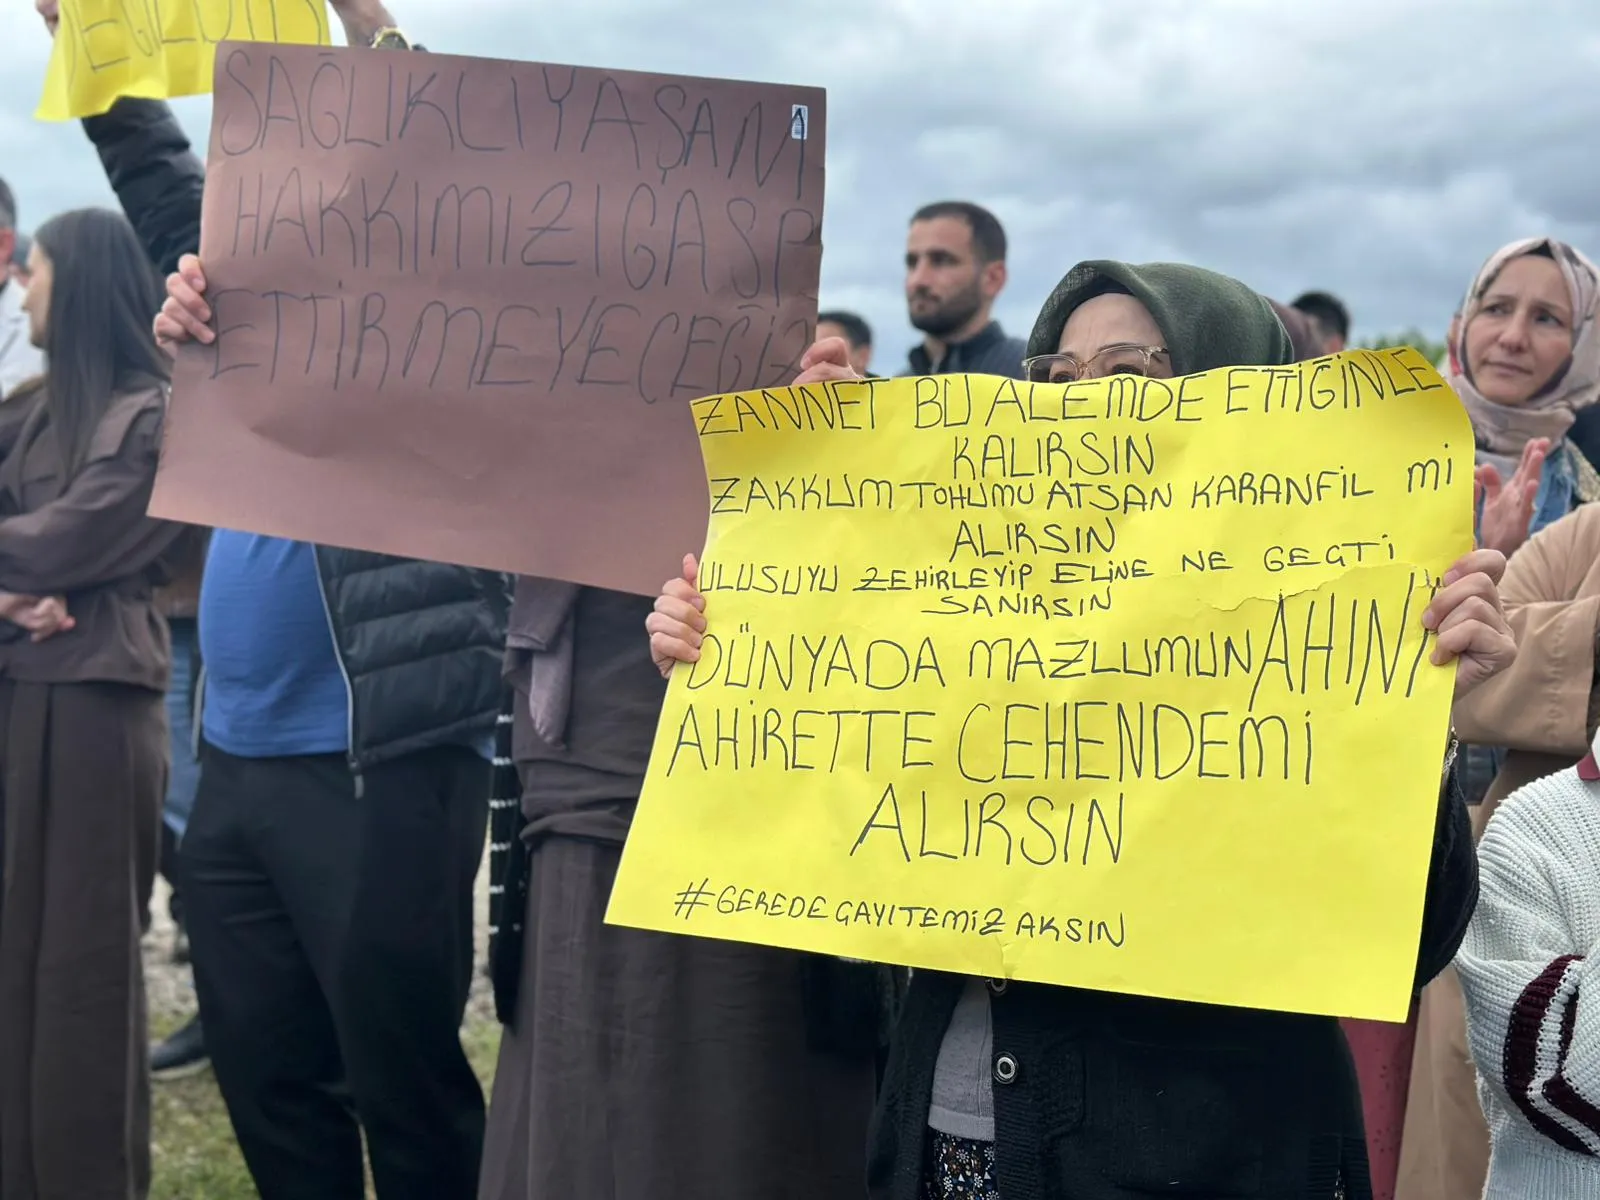 SAĞLIKLI YAŞAMA
HAKKIMIZI GASP
ETTİRMEYECEĞİZ
ZANNET BU ALEMDE ETTİĞİNLE
KALIRSIN
ZAKKUM TOHUMU ATSAN KARANFİL Mİ
ALIRSIN
ULUSUYU ZEHİRLEYİP ELİNE NE GEÇTİ
SANIRSIN
DÜNYADA MAZLUMUN AHINI
AHİRETTE CEHENDEMİ
ALIRSIN
#GEREDEGAYITEMİZAKSIN